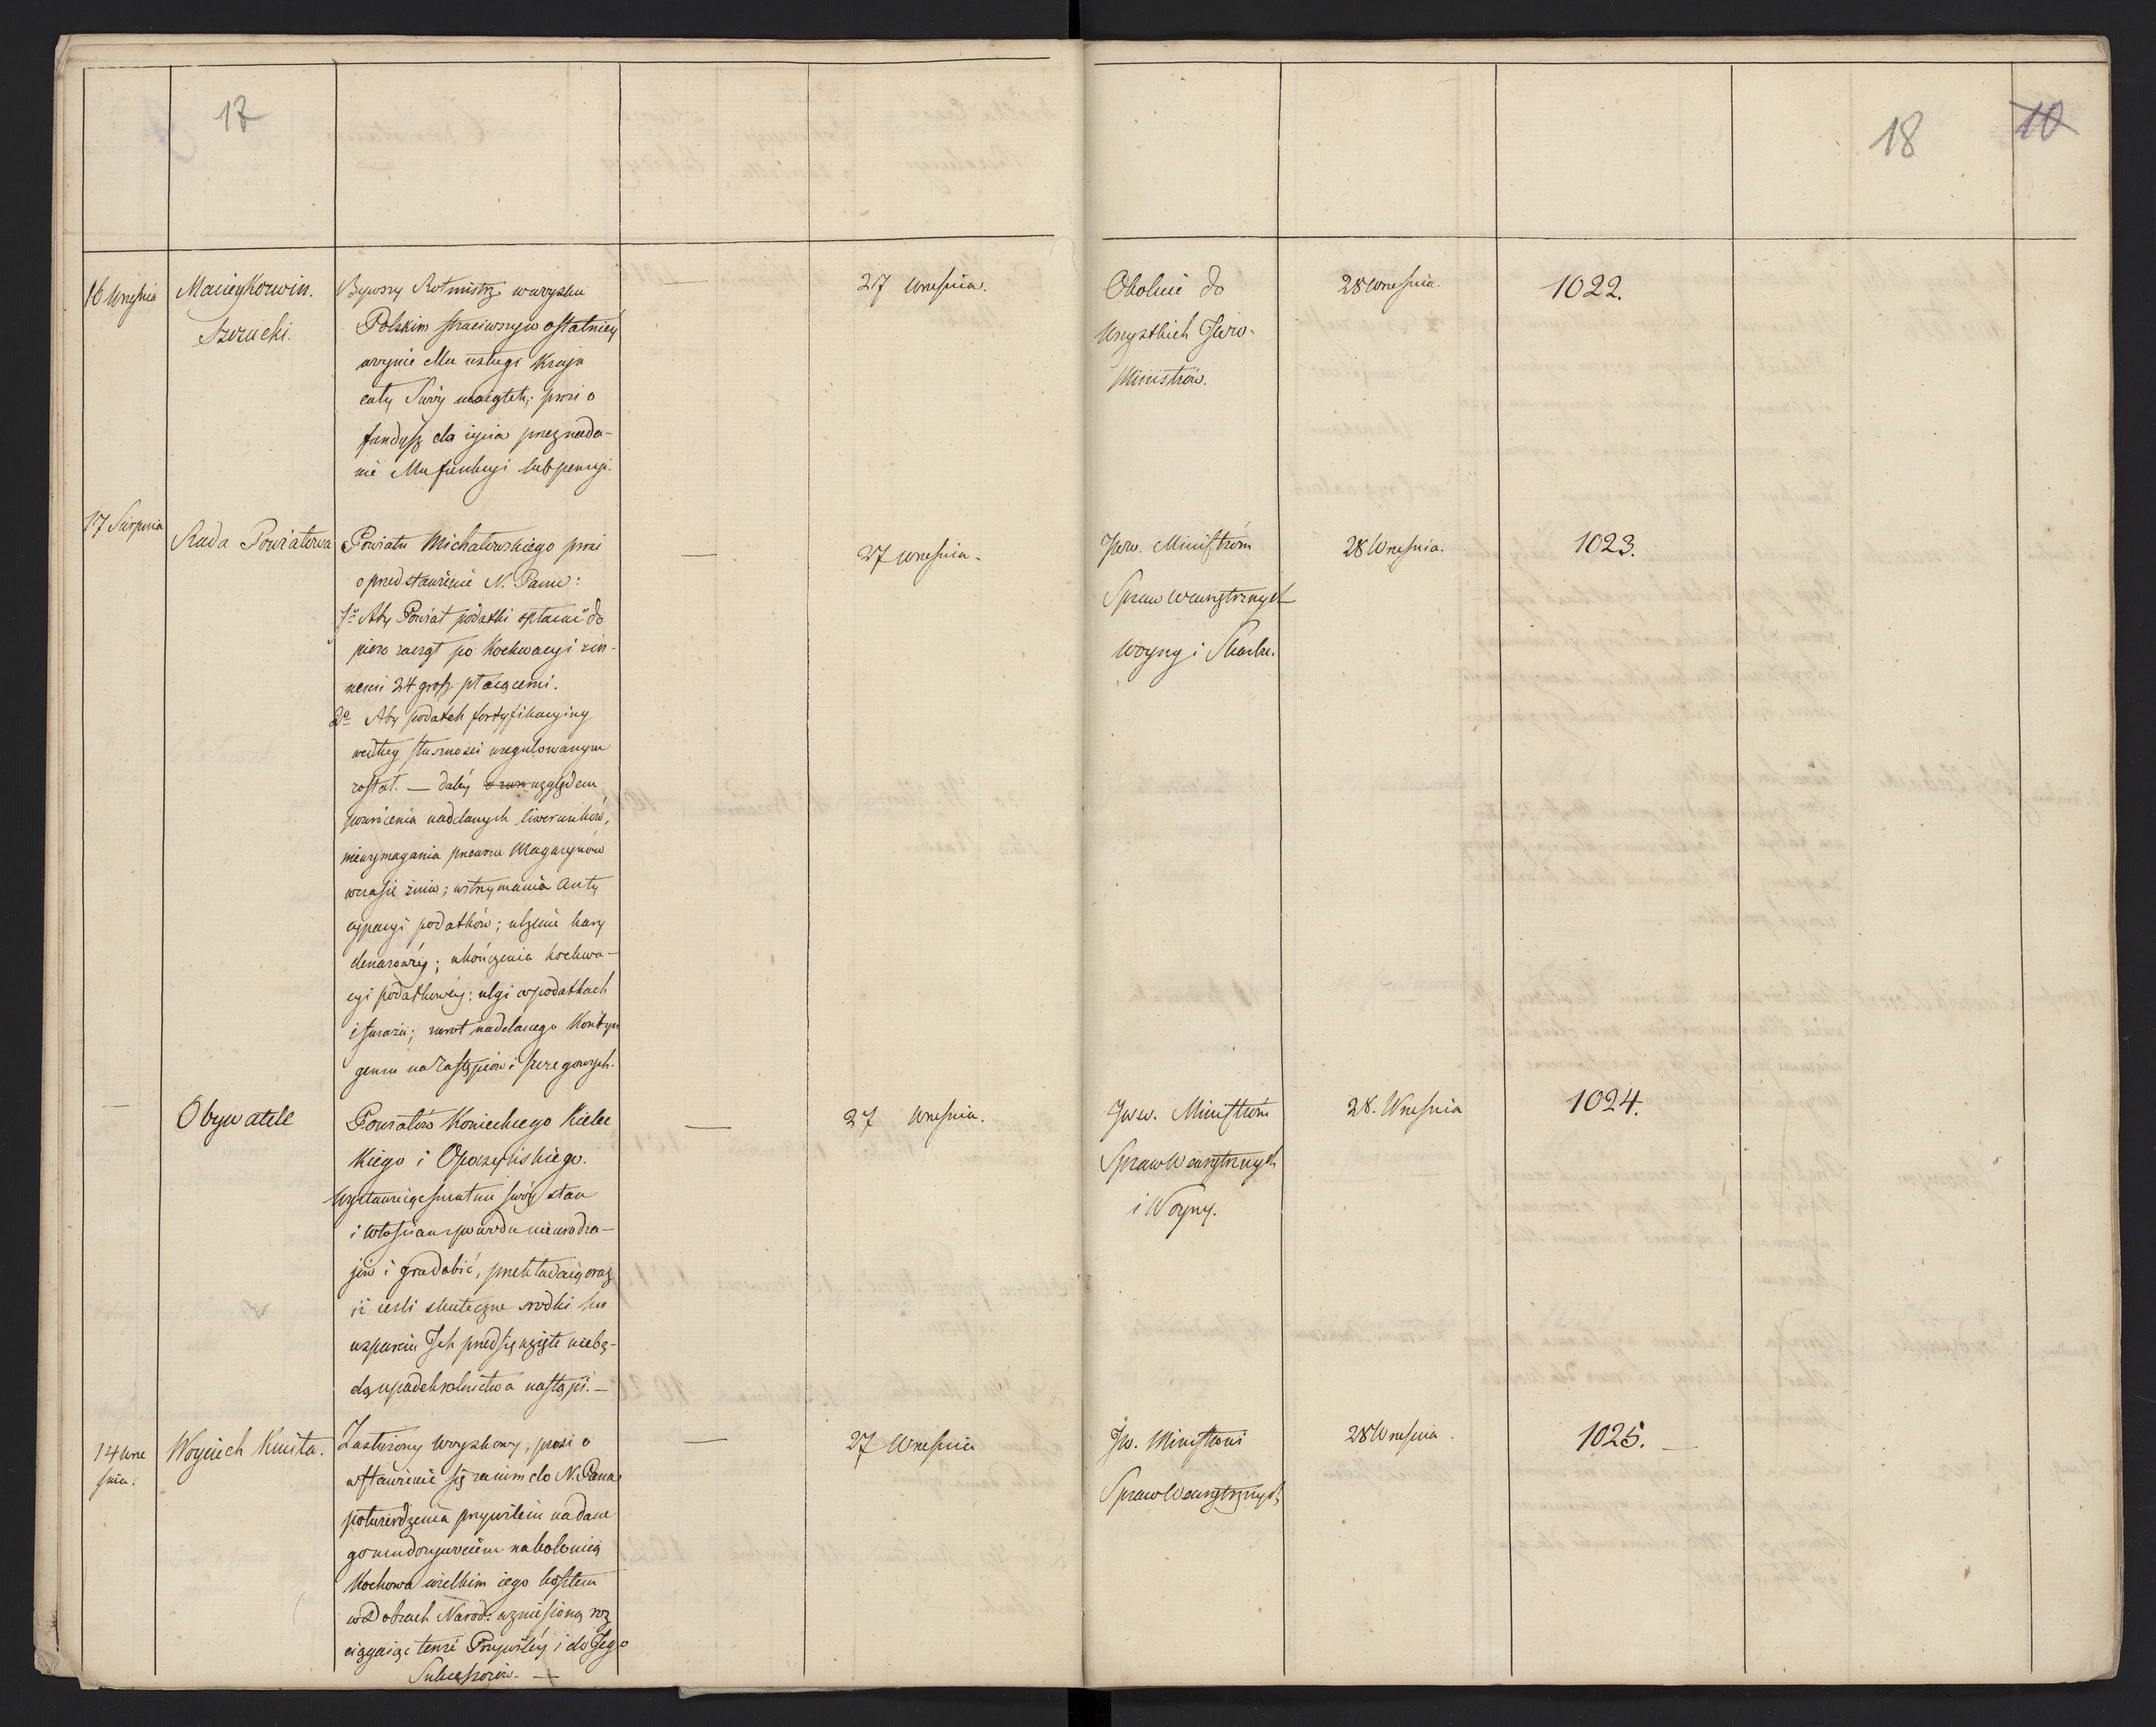 17
18
10
16 Września
Maciey Korwin
Szerucki.
Bywszy Rotmistrz w woysku
Polskim straciwszy w ostatniey
woynie dla usługi Kraju
cały Swóy maiątek; prosi o
fundusz do życia przez nada-
nie Mu funkcyi lub pensyi.
27 Września.
Okolnie do
Wszystkich Jww.
Ministrów.
28 Września.
1022.
17 Sierpnia
Rada Powiatowa
Powiatu Michałowskiego prosi
o przedstawienie N. Panu:
1º Aby Powiat podatki opłacać do
piero zaczął po Koekwacyi z in-
nemi 24 grosz płacącemi.
2º Aby podatek fortyfikacyiny
według słuszności uregulowanym
został. — daléy względem
powrócenia naddanych liwerunków,
niewymagania przewozu Magazynów
w czasie żniw; wstrzymania Anty
cypacyi podatków; ulżenie kary
denarowéy; ukończenia koekwa-
cyi podatkowéy; ulgi w podatkach
i furażu; zwrot naddanego Kontyn
gensu na Zastępców i szeregowych.
—
27 Września.
Jww. Ministróm
Spraw Wewnętrznych
Woyny i Skarbu.
28 Września.
1023.
—
Obywatele
Powiatów Konieckiego Kielec
kiego i Opoczyńskiego.
Wystawuiąc smutni swóy stan
i Włościan z powodu nieurodza-
jów i gradobić, przekładaią oraz
iż ieśli skuteczne srodki ku
wsparciu Ich przedsięwzięte niebę-
dą upadek rolnictwa nastąpi. —
—
27 Września.
Jww. Ministróm
Spraw Wewnętrznych
i Woyny.
28. Września
1024.
14 Wrze
śnia.
Woyciech Kwita.
Zasłużony Woyskowy, prosi o
wstawienie się za nim do N. Pana
potwierdzenia przywileiu nadane
go mu dożywociem na kolonią
Kochowa wielkim iego kosztem
w Dobrach Narod: wzniesioną roz
ciągaiąc tenże Przywiléy i do Jego
Sukcessorów. —
—
27 Września
Jw. Ministrowi
Spraw Wewnętrznych
28 Września.
1025. —